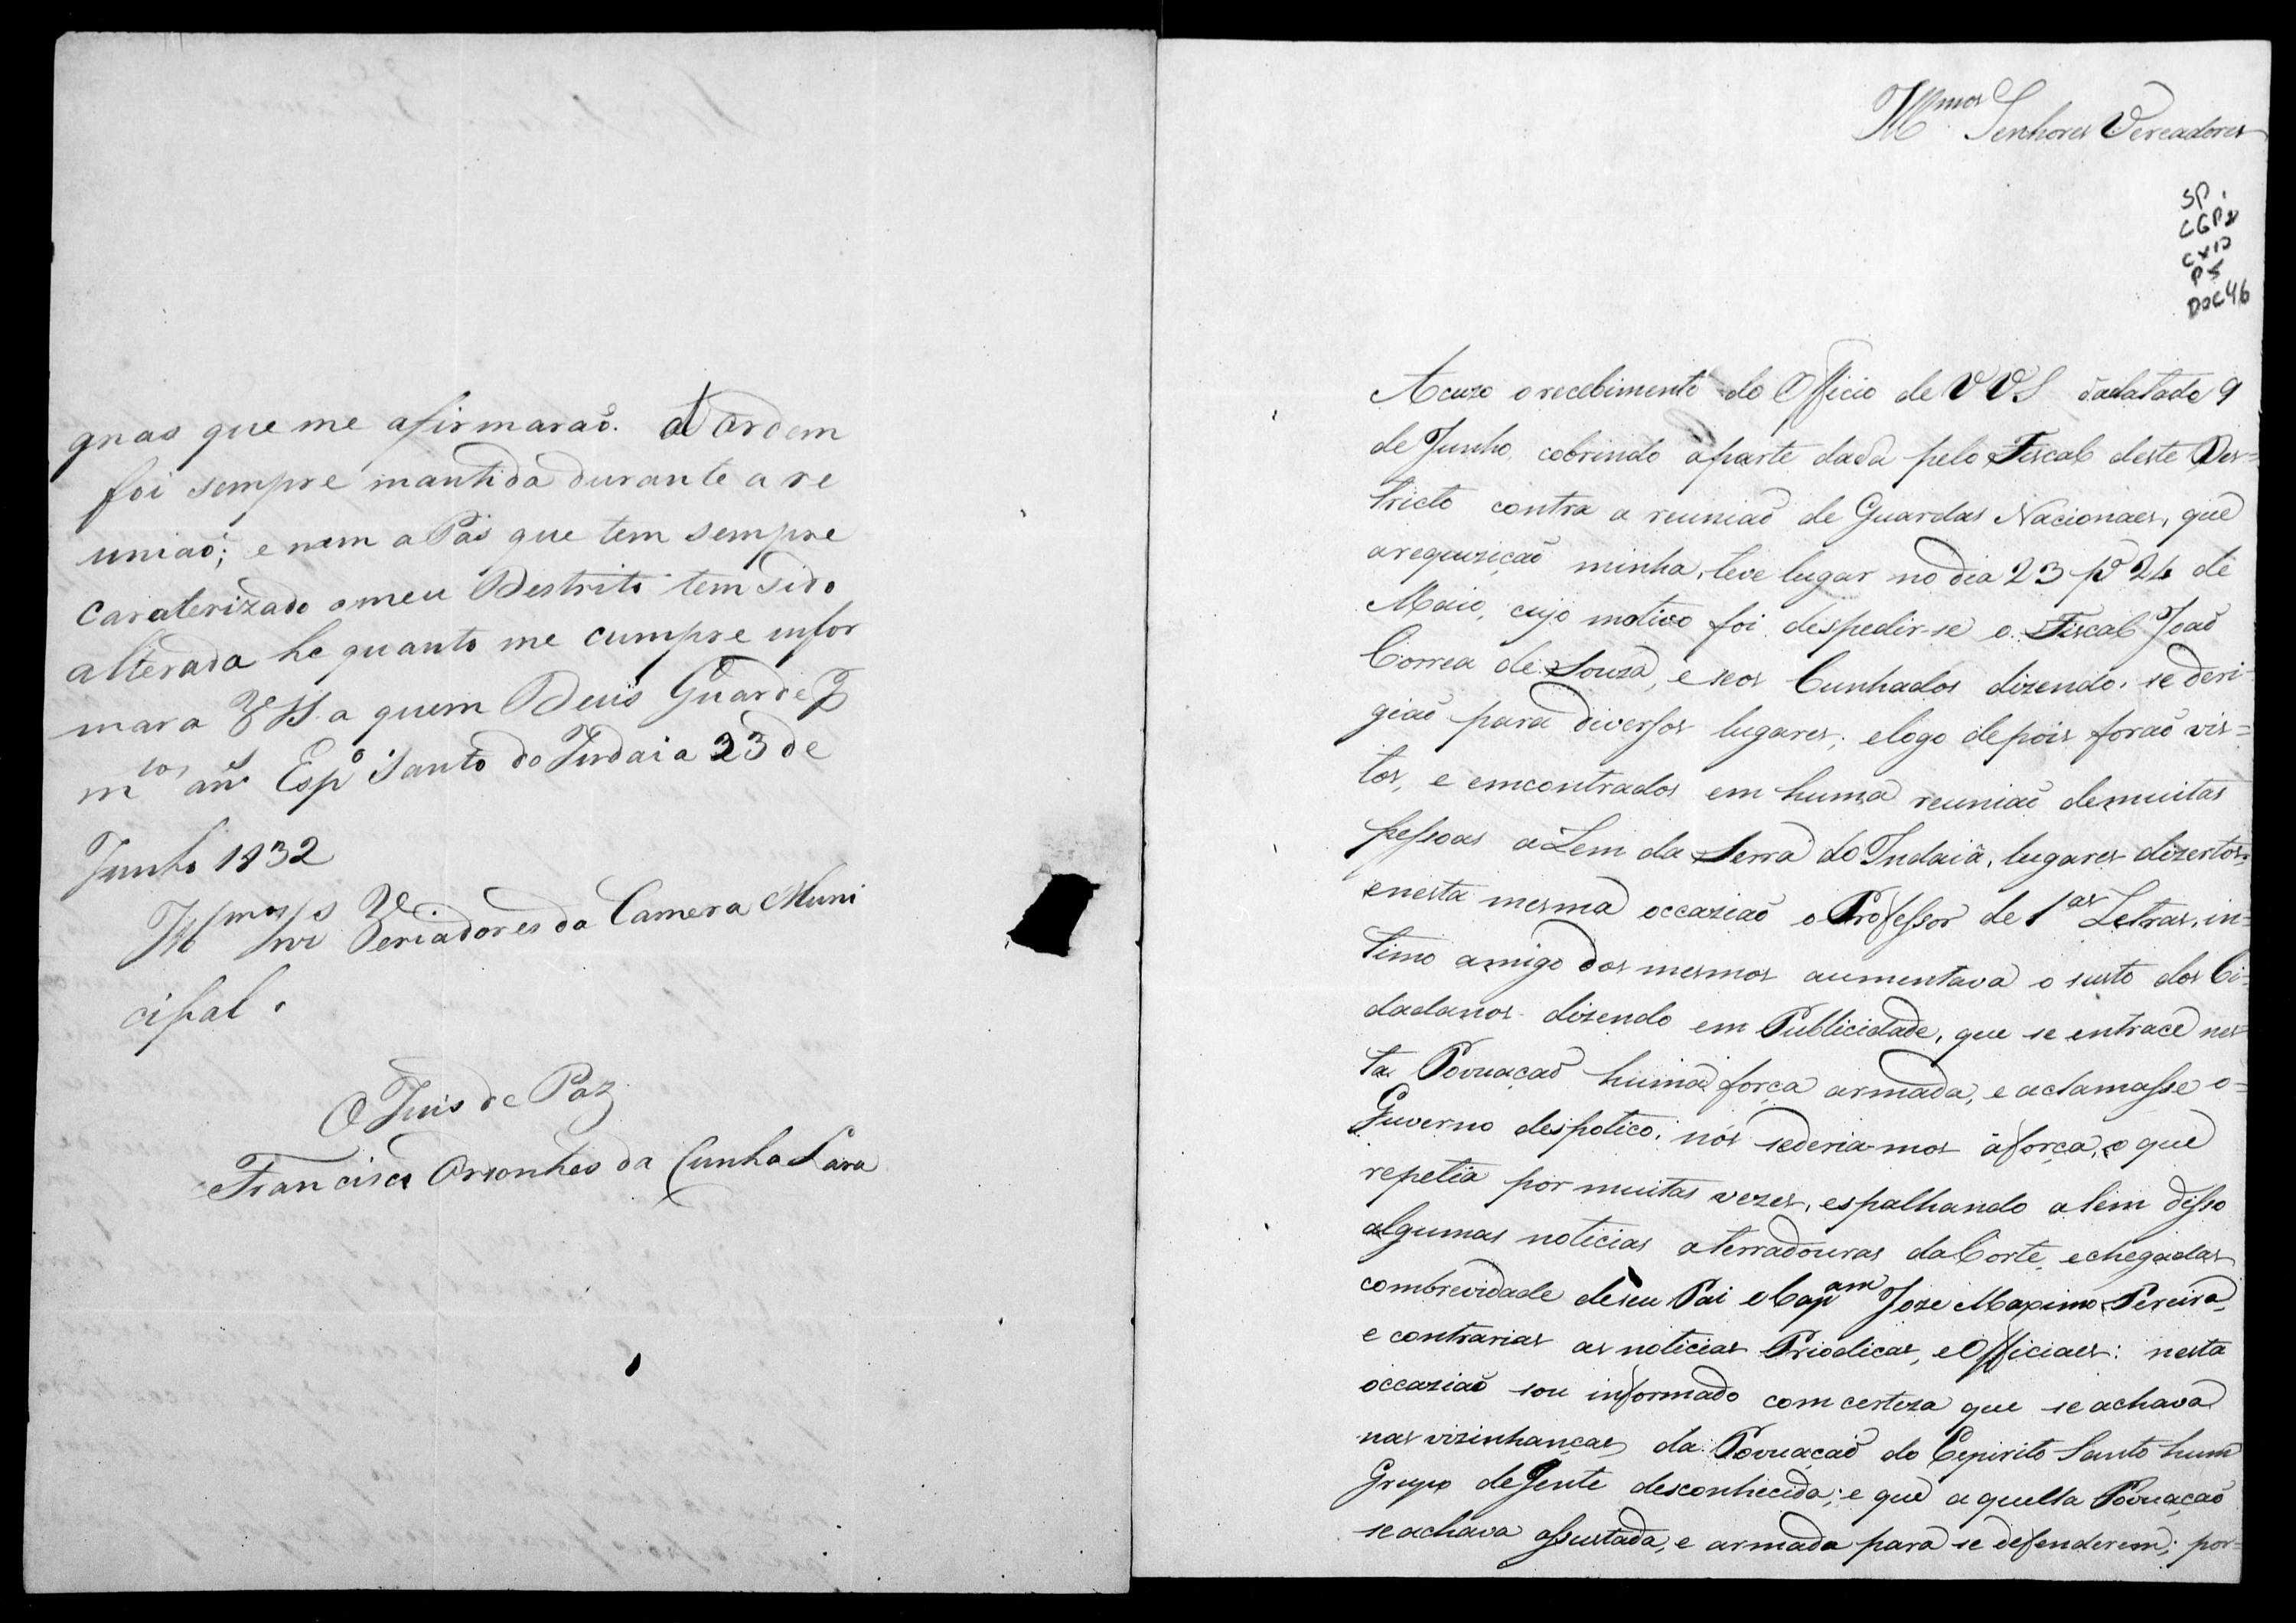 gnas que me afirmaraõ. A ordem
foi sempre mantida durante a re
uniaõ; e nem a Pas que tem sempre
caraterizado o meu Destrito tem sido
alterada he quanto me cumpre infor
mar a VSS. a quem Deus Guarde P
m.tos an.s Esp.o Santo do Indaia 23 de
Junho 1832
Ill.mos Snr.s Veriadores da Camera Muni
cipal.
O Juis de Paz
Francisco Orsonhes da Cunha Lara
Ill.mos Senhores Vereadores
SP.
CGP2
CX10
P5
DOC46
Acuzo o recebimento do Officio de VVS dadatado 9
de Junho, cobrindo aparte dada pelo Fiscal deste Des=
tricto contra a reuniaõ de Guardas Nacionaes, que
arequiziçaõ minha, teve lugar no dia 23 p.a 24 de
Maio, cujo motivo foi despedir-se o Fiscal Joaõ
Correa de Souza, e seos Cunhados dizendo, se deri-
giaõ para diversos lugares; elogo depois foraõ vis=
tos, e emcontrados em huma reuniaõ demuitas
pessoas aLem da Serra do Indaiá, lugares dizertos:
enesta mesma occaziaõ o Professor de 1.as Letras, in=
timo amigo dos mesmos aumentava o susto dos Ci=
dadanos dizendo em Publicidade, que se entrace nes=
ta Povuaçaõ huma força armada, e aclamasse o=
Guverno despotico, nós sederia-mos áforça, o que
repetia por muitas vezes, espalhando alem disso
algumas noticias aterradouras daCorte, echegadas
combrevidade deseu Pai oCap.am Joze Maximo Pereira,
e contrarias as noticias Priodicas, eOfficiaes: nesta
occaziaõ sou informado com certeza que se achava
nas vizinhanças da Povuaçaõ do Espirito Santo hum
Grupo deGente desconhecida; e que aquella Povuaçaõ
seachava assustada, e armada para se defenderem; por=